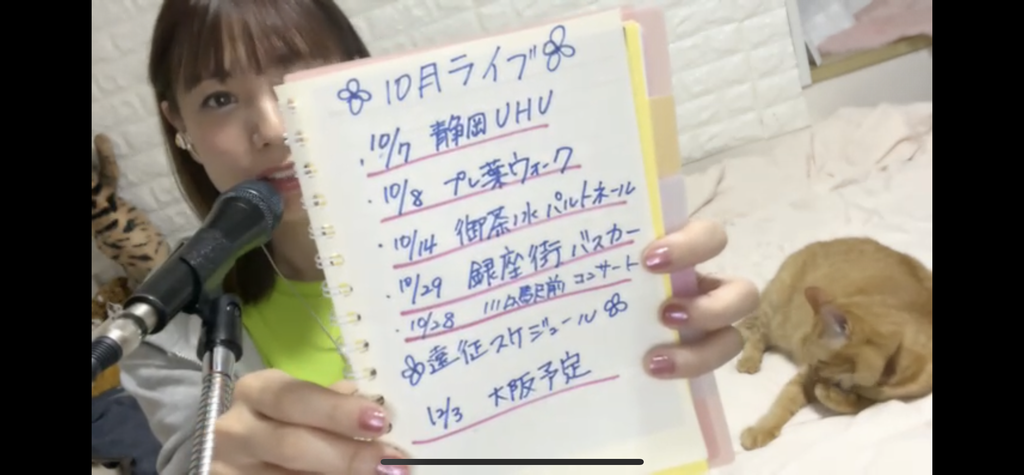 10月ライブ
・10/7 静岡UHU
・10/8 プレ葉ウォーク
・10/14 御茶ノ水 パルトネール
・10/29 銀座街 バスカー
・10/28 川口駅前 コンサート
遠征スケジュール
12/3 大阪予定